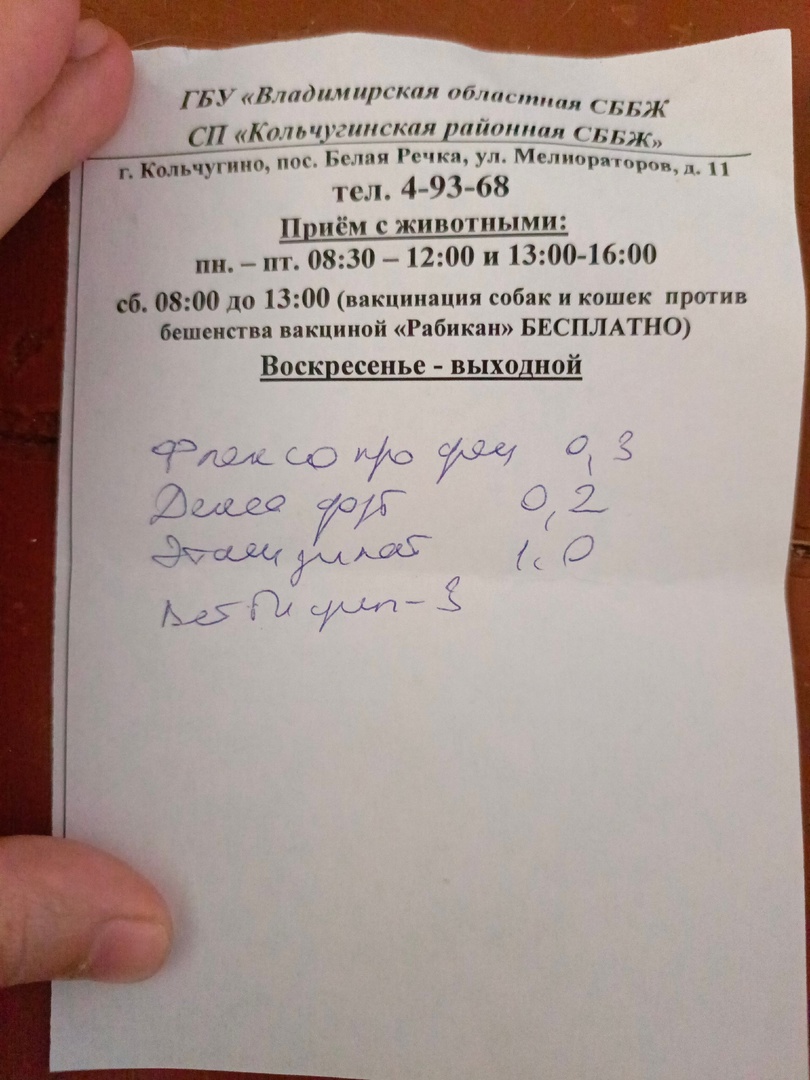 ГБУ «Владимирская областная СББЖ
СП «Кольчугинская районная СББЖ»
г. Кольчугино, пос. Белая Речка, ул. Мелиораторов, д. 11
тел. 4-93-68
Приём с животными:
пн. – пт. 08:30 – 12:00 и 13:00-16:00
сб. 08:00 до 13:00 (вакцинация собак и кошек против
бешенства вакциной «Рабикан» БЕСПЛАТНО)
Воскресенье - выходной
Флексопрофен 0,3
0,2
Этамзилат 1.0